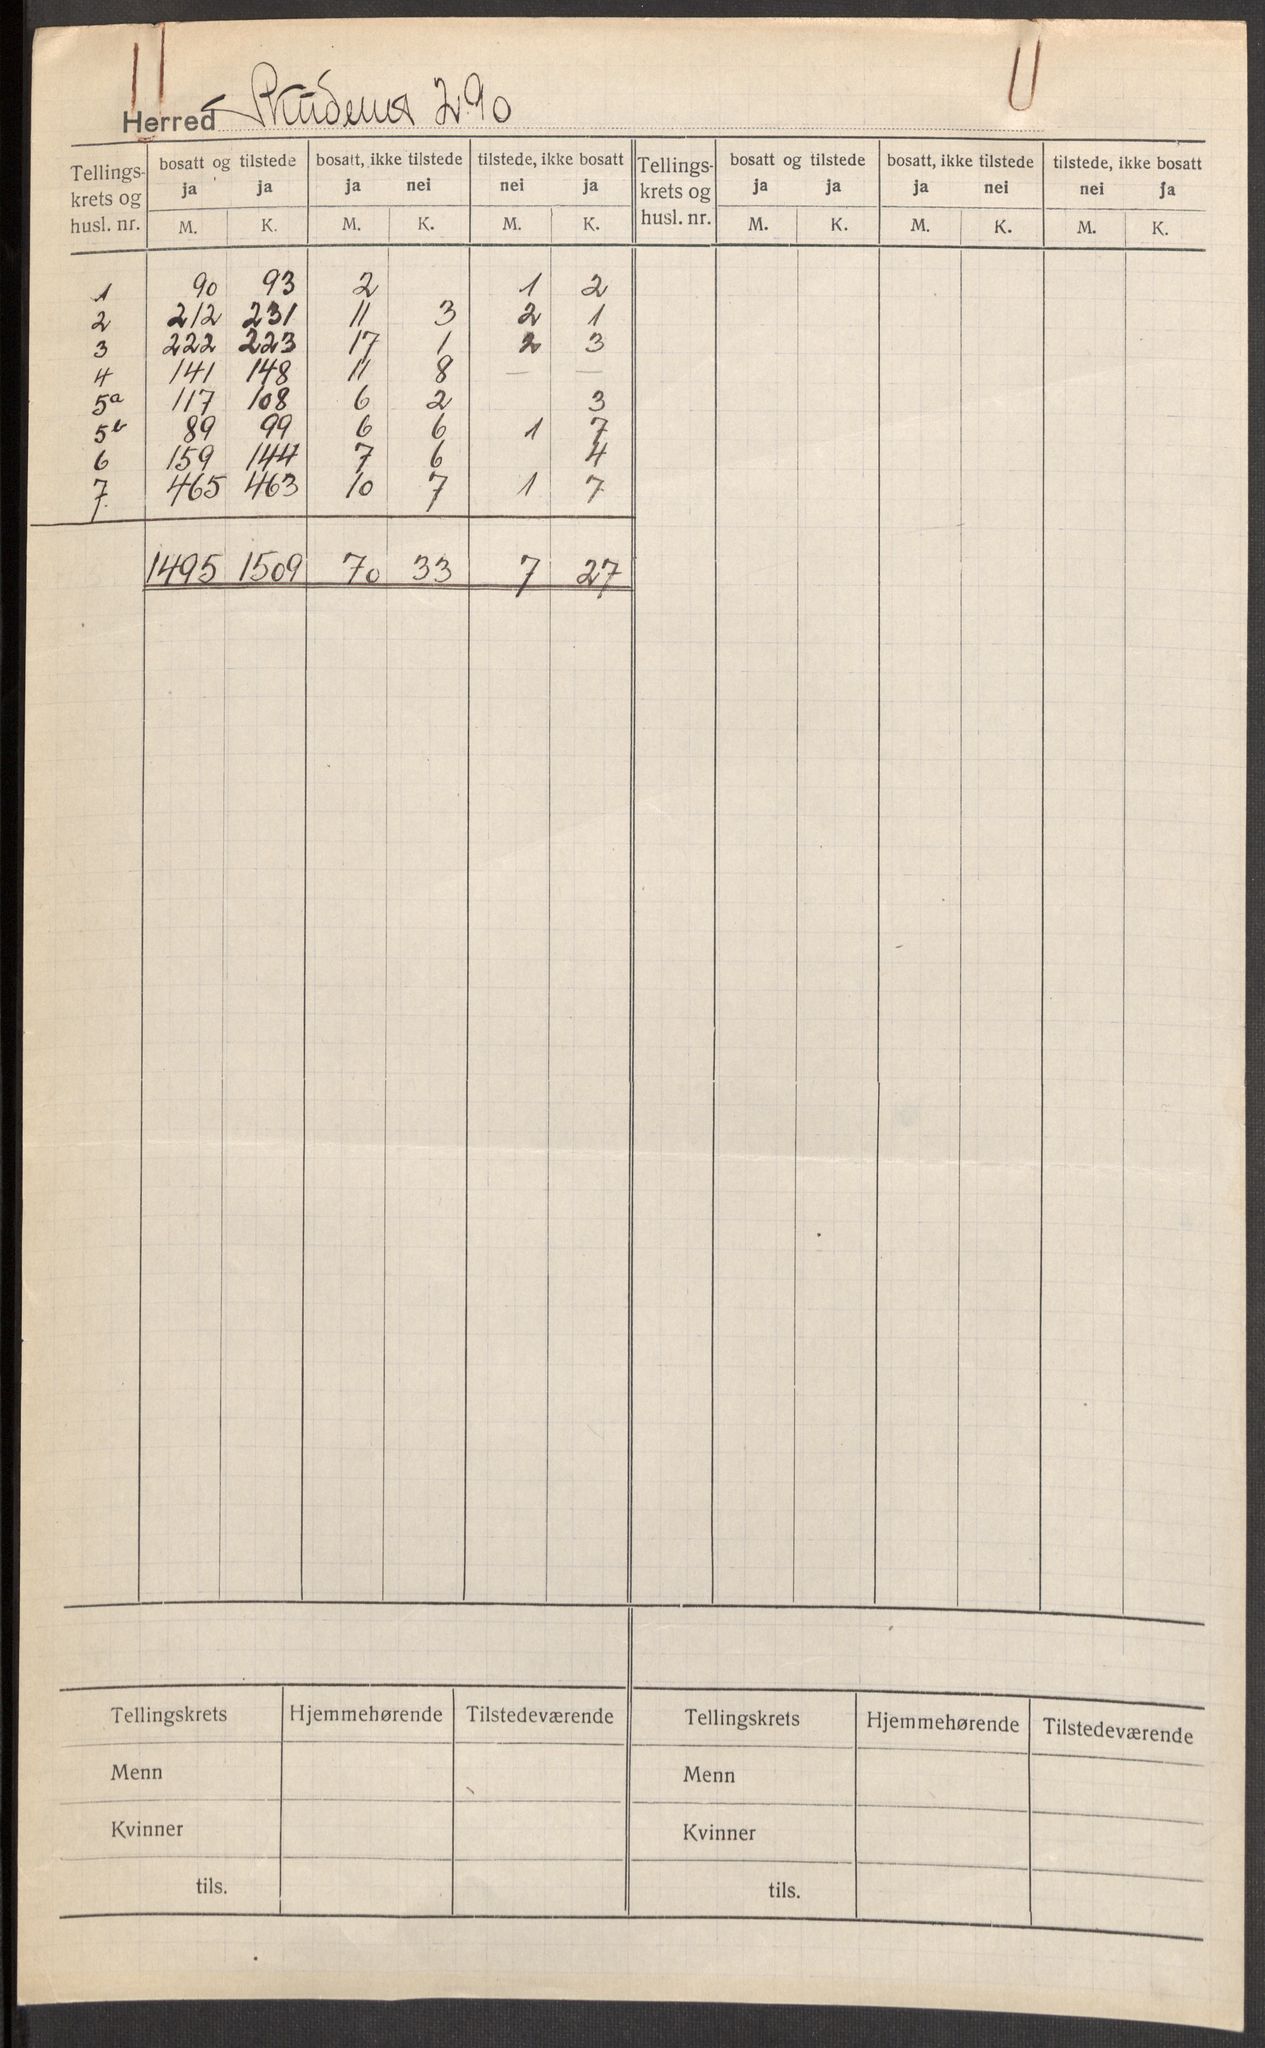 Herred Skudenes 290
Tellings-krets og husl. nr. | bosatt og tilstede | bosatt, ikke tilstede | tilstede, ikke bosatt | Tellings-krets og husl. nr. | bosatt og tilstede | bosatt, ikke tilstede | tilstede, ikke bosatt
ja ja | ja nei | nei ja | ja ja | ja nei | nei ja
M. K. | M. K. | M. K. | M. K. | M. K. | M. K.
1 90 93 2 1 2
2 212 231 11 3 2 1
3 222 223 17 1 2 3
4 141 148 11 8 — —
5a 117 108 6 2 3
5b 89 99 6 6 1 7
6 159 144 7 6 4
7 465 463 10 7 1 7
1495 1509 70 33 7 27
Tellingskrets Hjemmehørende Tilstedeværende Tellingskrets Hjemmehørende Tilstedeværende
Menn Menn
Kvinner Kvinner
tils. tils.